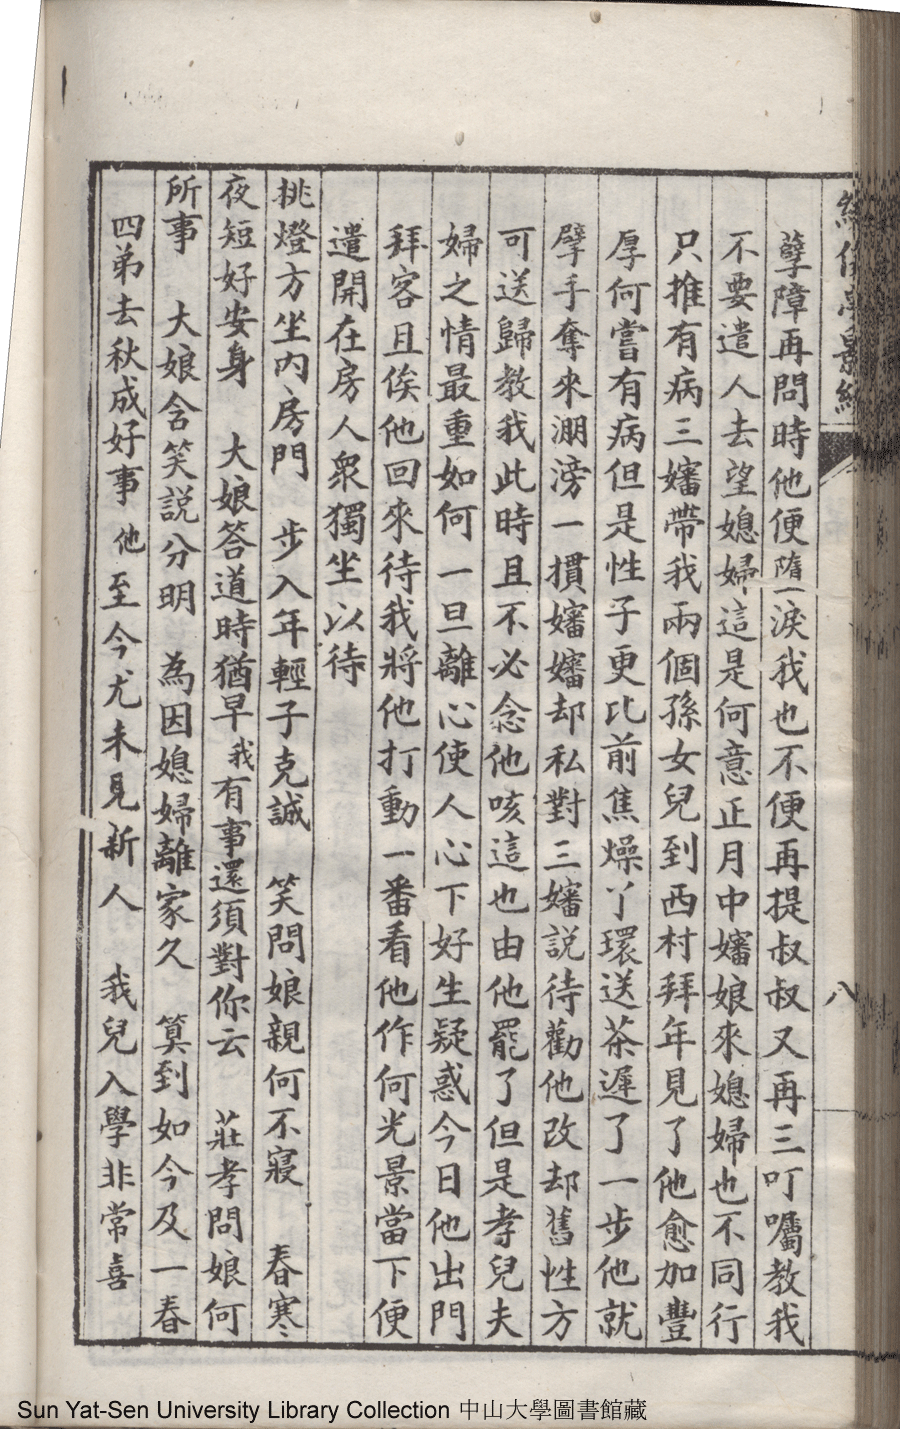 八
孽障再問時他便墮淚我也不便再提叔叔又再三叮囑教我
不要遣人去望媳婦這是何意正月中嬸娘來媳婦也不同行
只推有病三嬸帶我兩個孫女兒到西村拜年見了他愈加豐
厚何嘗有病但是性子更比前焦燥丫環送茶遲了一步他就
擘手奪來淜滂一摜嬸嬸却私對三嬸說待勸他改却舊性方
可送歸教我此時且不必念他咳這也由他罷了但是孝兒夫
婦之情最重如何一旦離心使人心下好生疑惑今日他出門
拜客且俟他回來待我將他打動一番看他作何光景當下便
遣開在房人衆獨坐以待
挑燈方坐內房門 步入年輕子克誠 笑問娘親何不寢 春寒
夜短好安身 大娘答道時猶早 我有事還須對你云 莊孝問娘何
所事 大娘含笑說分明 為因媳婦離家久 算到如今及一春
四弟去秋成好事 他至今尤未見新人 我兒入學非常喜
Sun Yat-Sen University Library Collection 中山大學圖書館藏